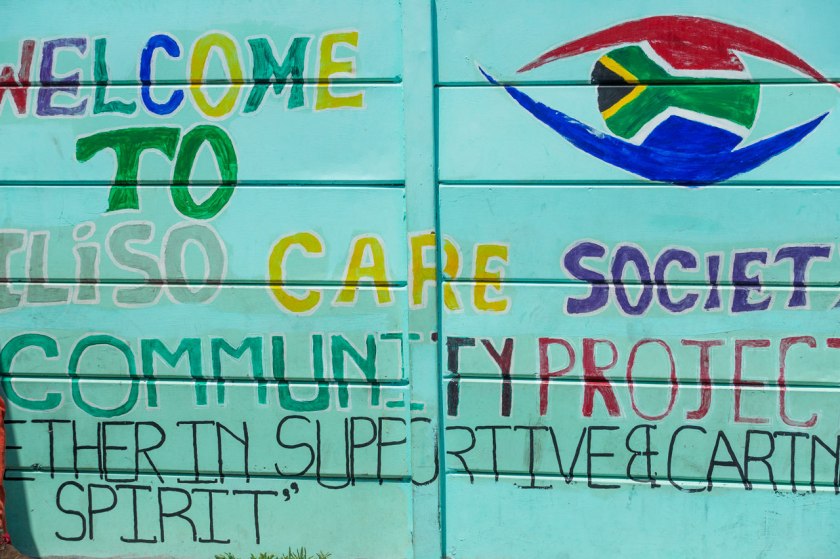 WELCOME
TO
ILiSO CARE SOCIET
COMMUNITY PROJECT
ETHER IN SUPPORTIVE & CARTN
SPIRIT"